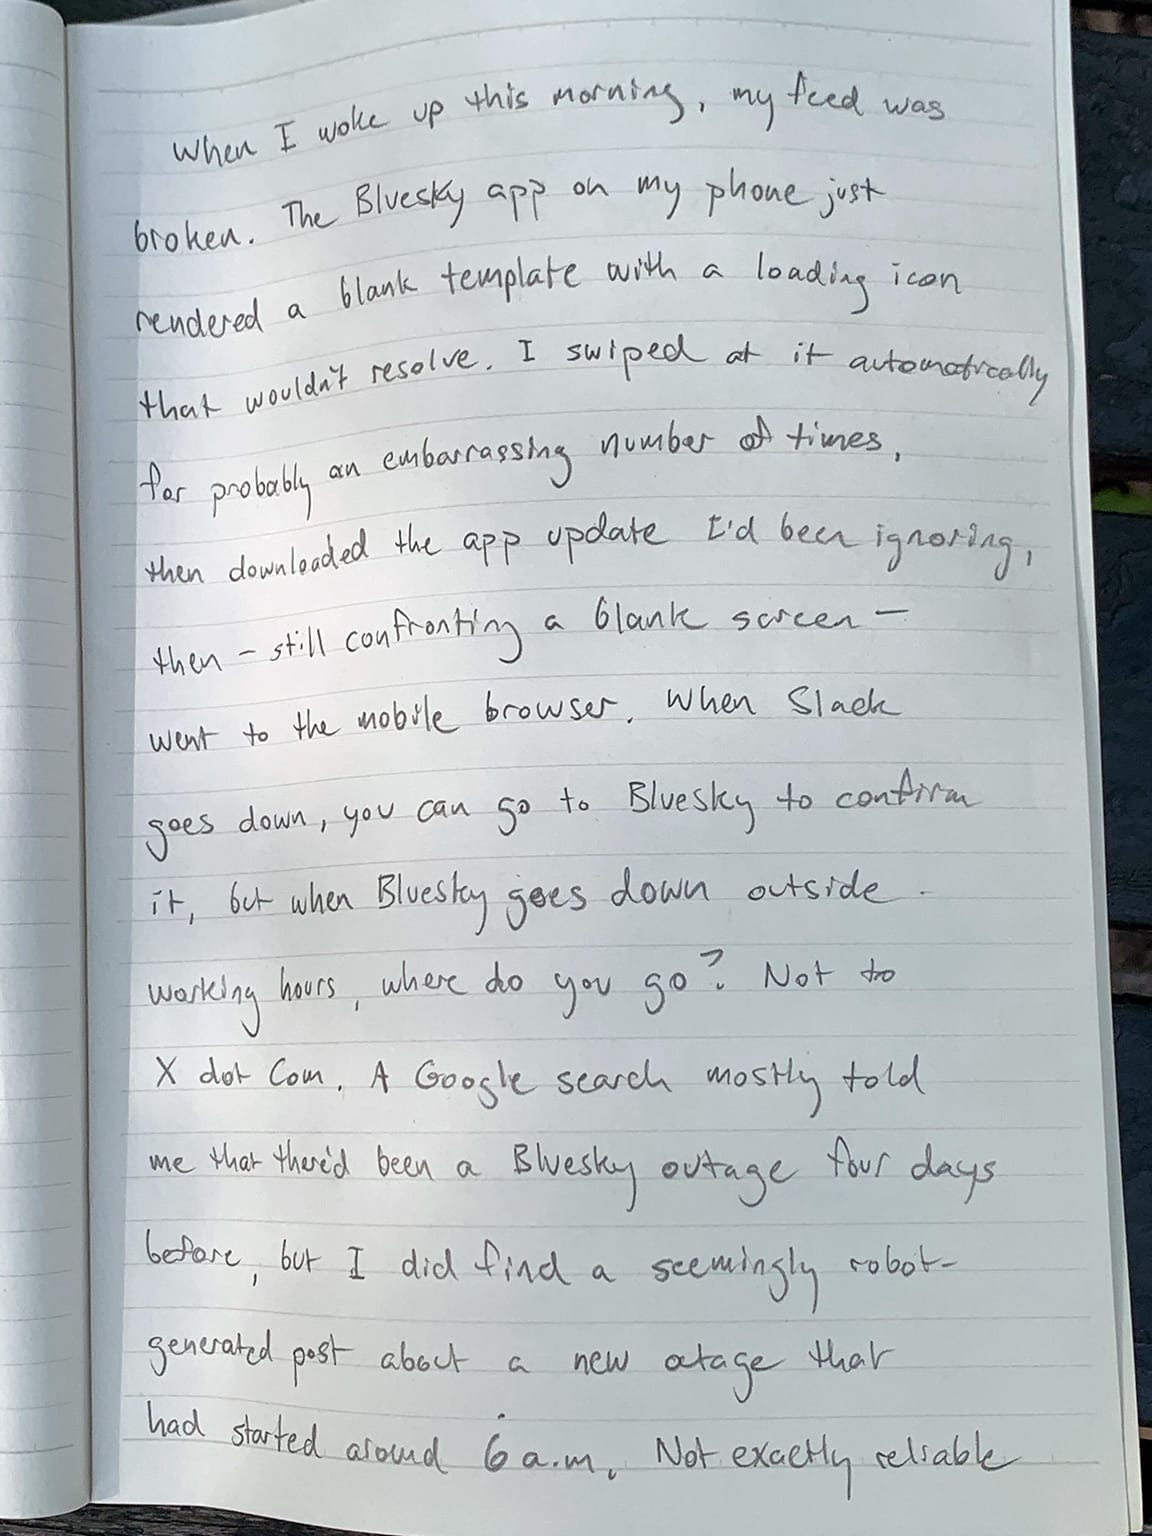 When I woke up this morning, my feed was
broken. The Bluesky app on my phone just
rendered a blank template with a loading icon
that wouldn't resolve. I swiped at it automatically
for probably an embarrassing number of times,
then downloaded the app update I'd been ignoring,
then – still confronting a blank screen –
went to the mobile browser. When Slack
goes down, you can go to Bluesky to confirm
it, but when Bluesky goes down outside
working hours, where do you go? Not to
X dot Com. A Google search mostly told
me that there'd been a Bluesky outage four days
before, but I did find a seemingly robot-
generated post about a new otage that
had started around 6 a.m. Not exactly reliable